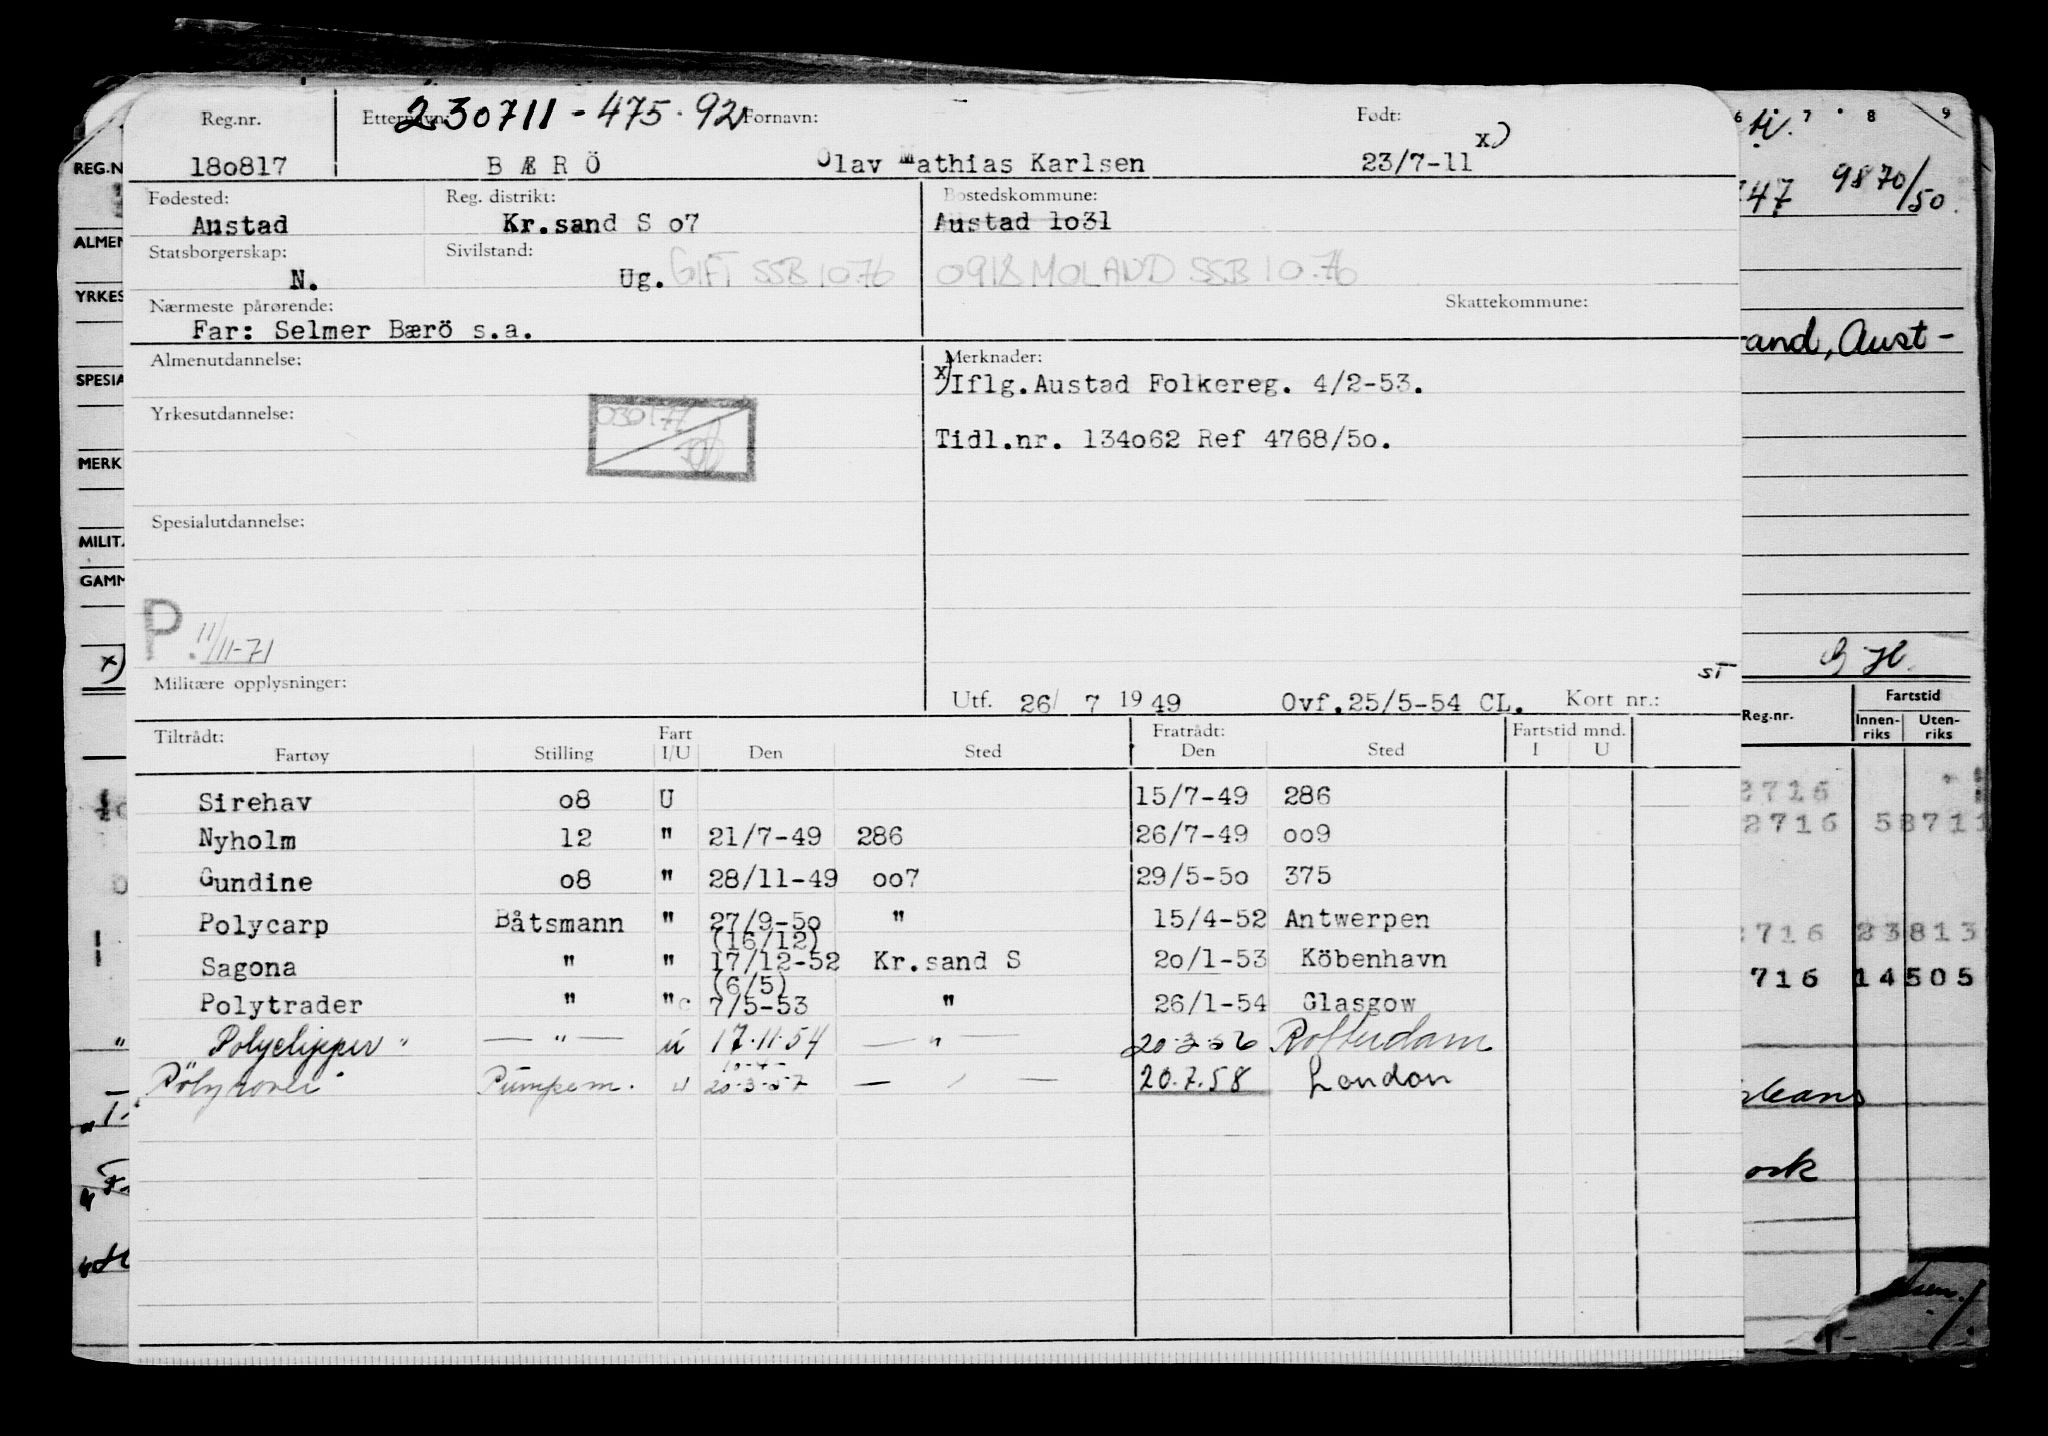 Reg.nr. Etternavn: 230711-475.92 Fornavn: Født:
180817 BÆRÖ Olav Mathias Karlsen 23/7-11 x)
Fødested: Reg. distrikt: Bostedskommune:
Austad Kr.sand S o7 Austad 1o31
Statsborgerskap: Sivilstand:
N. Ug. GIFT SSB 10.76 0918 MOLAND SSB 10.76
Nærmeste pårørende: Skattekommune:
Far: Selmer Bærö s.a.
Almenutdannelse: Merknader:
x) Iflg.Austad Folkereg. 4/2-53.
Yrkesutdannelse: 030177
Tidl.nr. 134o62 Ref 4768/5o.
Spesialutdannelse:
P. 11/11-71
Militære opplysninger: ST
Utf. 26/ 7 1949 Ovf.25/5-54 CL. Kort nr.:
Tiltrådt: Fart Fratrådt: Fartstid mnd.
Fartøy Stilling I/U Den Sted Den Sted I U
Sirehav o8 U 15/7-49 286
Nyholm 12 " 21/7-49 286 26/7-49 oo9
Gundine o8 " 28/11-49 oo7 29/5-5o 375
Polycarp Båtsmann " 27/9-5o " 15/4-52 Antwerpen
(16/12)
Sagona " " 17/12-52 Kr.sand S 2o/1-53 Köbenhavn
(6/5)
Polytrader " " 7/5-53 " 26/1-54 Glasgow
Polyclipper " — " — u 17.11.54 — " — 20.3.56 Rotterdam
Polyrover Pumpem. u 20-3-57 — " — 20.7.58 London
REG.N
ALMEN
YRKES
SPESIA
MERK
MILIT
GAMM
x)
6 7 8 9
147 9870/50.
rand, Aust-
Reg.nr. Fartstid
Innenriks Utenriks
2716
2716 58711
2716 23813
716 14505
leans
ork